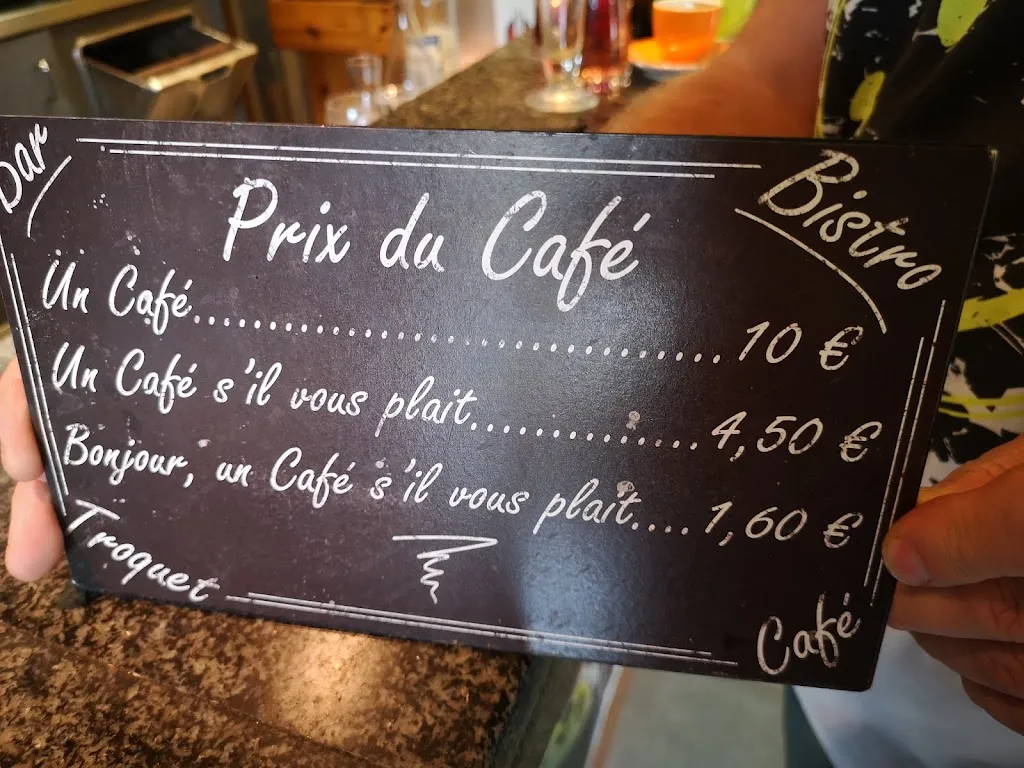 Bar
Bistro
Prix du Café
Un Café.................................... 10 €
Un Café s'il vous plait............... 4,50 €
Bonjour, un Café s'il vous plait.... 1,60 €
Troquet
Café